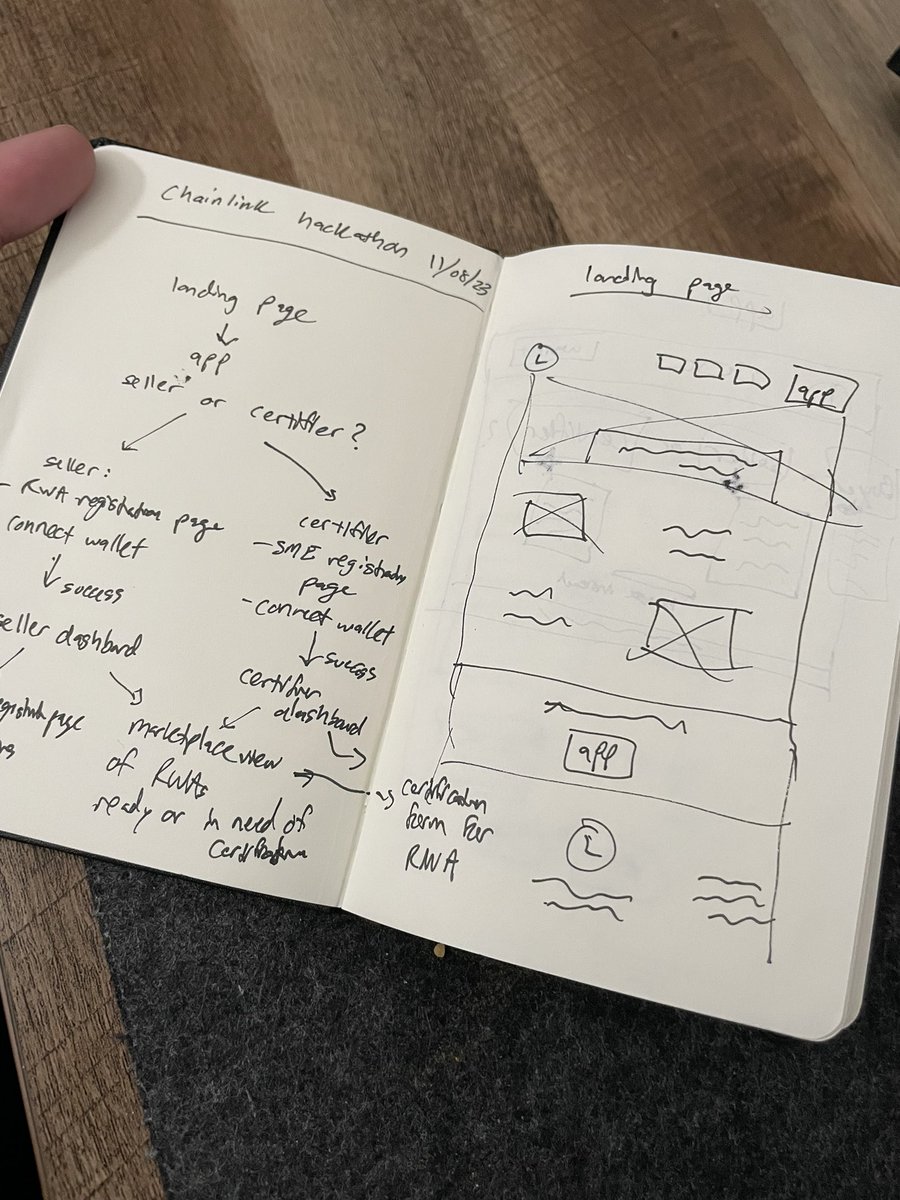 Chainlink hackathon 11/08/23
landing page
app
seller or certifier?
seller:
- RWA registration page
connect wallet
success
seller dashboard
page
marketplace view
of RWAs
ready or in need of
certification
certifier
- SME registration
page
- connect wallet
success
certifier
dashboard
certification
form for
RWA
landing page
L
app
app
L